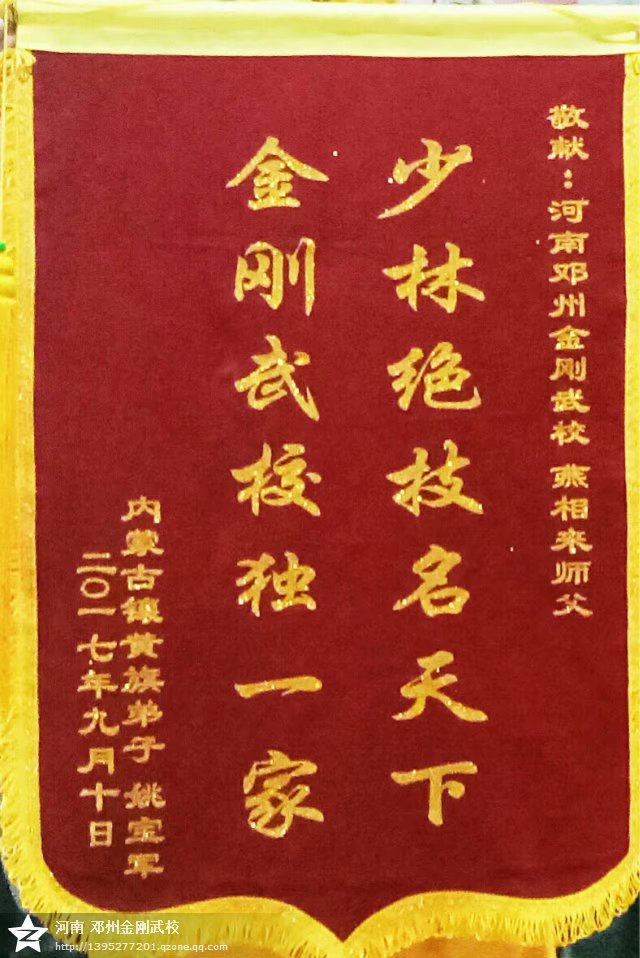 敬献：河南邓州金刚武校 燕相来师父
少林绝技名天下
金刚武校独一家
内蒙古镶黄旗弟子 姚宝军
二〇一七年九月十日
河南 邓州金刚武校
http://1395277201.qzone.qq.com